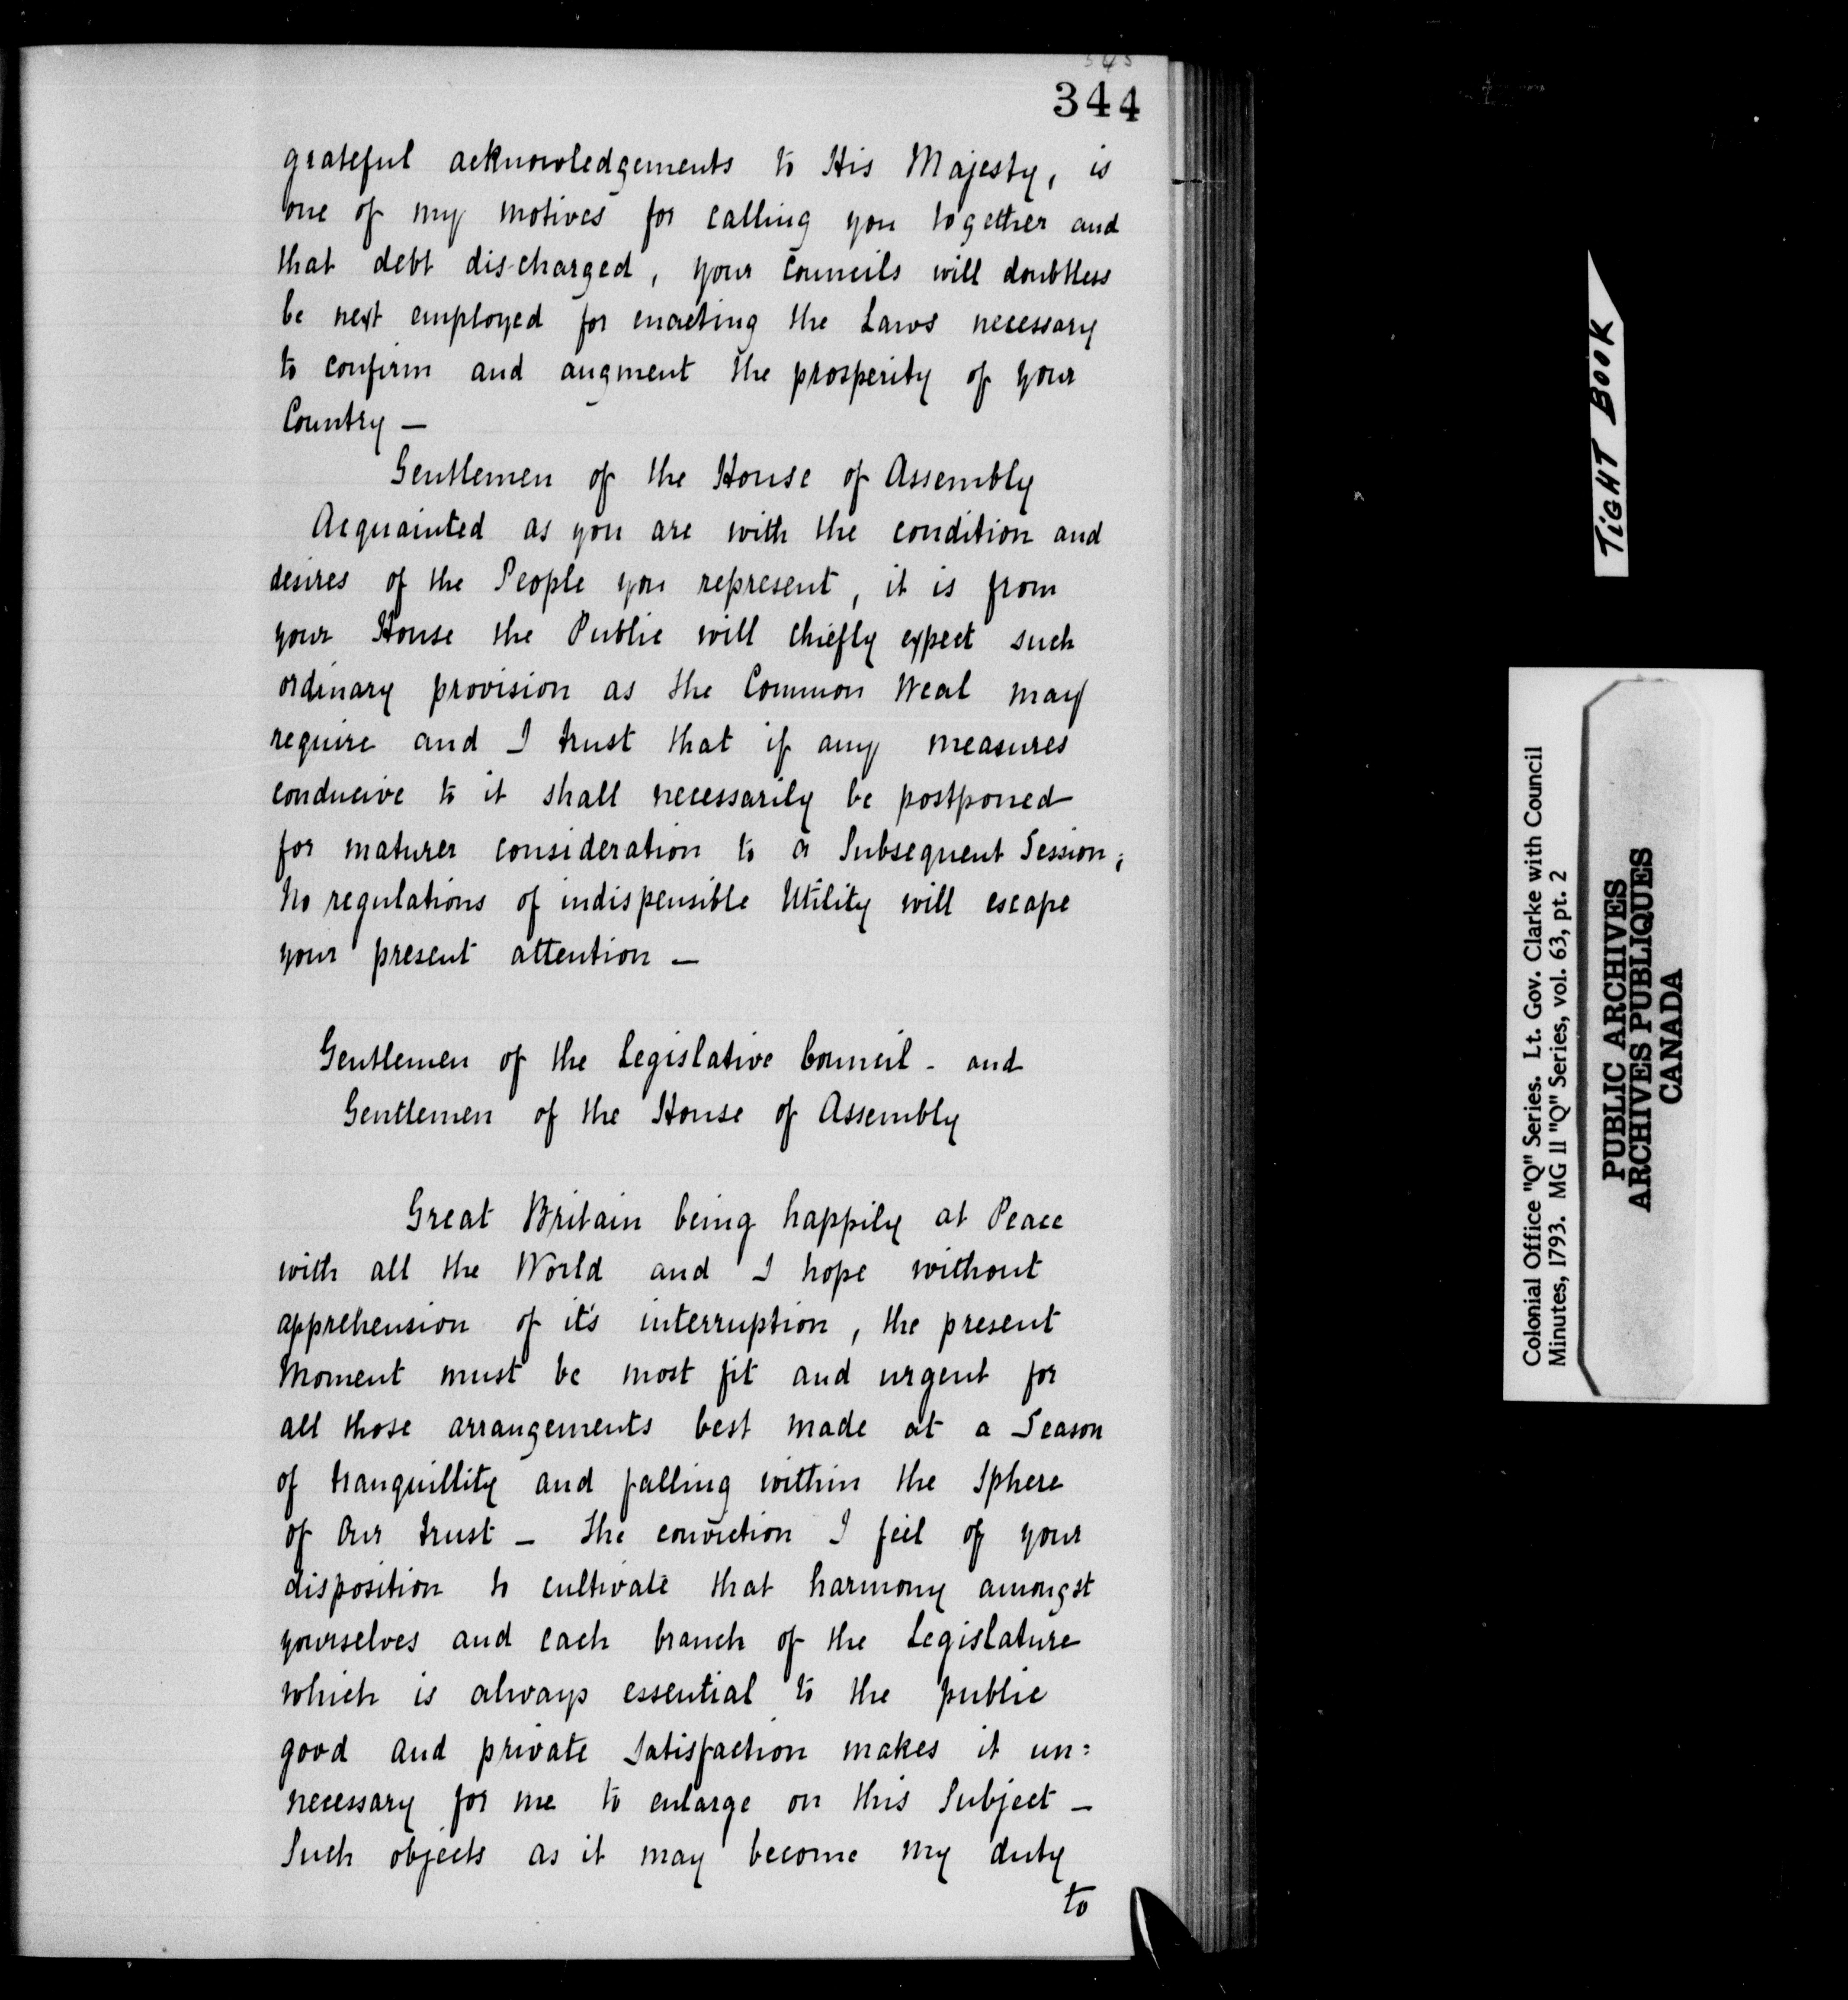 344
grateful acknowledgements to His Majesty, is
one of my motives for calling you together and
that debt discharged, your Councils will doubtless
be next employed for enacting the Laws necessary
to confirm and augment the prosperity of your
Country —
Gentlemen of the House of Assembly
Acquainted as you are with the condition and
desires of the People you represent, it is from
your House the Public will chiefly expect such
ordinary provision as the Common Weal may
require and I trust that if any measures
conducive to it shall necessarily be postponed
for maturer consideration to a Subsequent Session;
No regulations of indispensible Utility will escape
your present attention —
Gentlemen of the Legislative Council - and
Gentlemen of the House of Assembly
Great Britain being happily at Peace
with all the World and I hope without
apprehension of it's interruption, the present
Moment must be most fit and urgent for
all those arrangements best made at a Season
of tranquillity and falling within the Sphere
of Our trust — the conviction I feel of your
disposition to cultivate that harmony amongst
yourselves and each branch of the Legislature
which is always essential to the public
good and private Satisfaction makes it un=
necessary for me to enlarge on this Subject —
Such objects as it may become my duty
to
TiGHT BOOK
Colonial Office "Q" Series. Lt. Gov. Clarke with Council
Minutes, 1793. MG 11 "Q" Series, vol. 63, pt. 2
PUBLIC ARCHIVES
ARCHIVES PUBLIQUES
CANADA